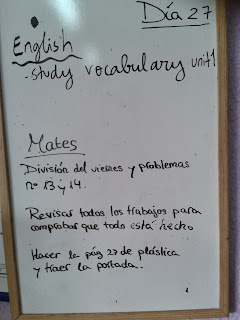 Día 27
English
-study vocabulary unit 1
Mates
División del viernes y problemas
nº 13 y 14.
Revisar todos los trabajos para
comprobar que todo está hecho
Hacer la pág 27 de plástica
y traer la portada.